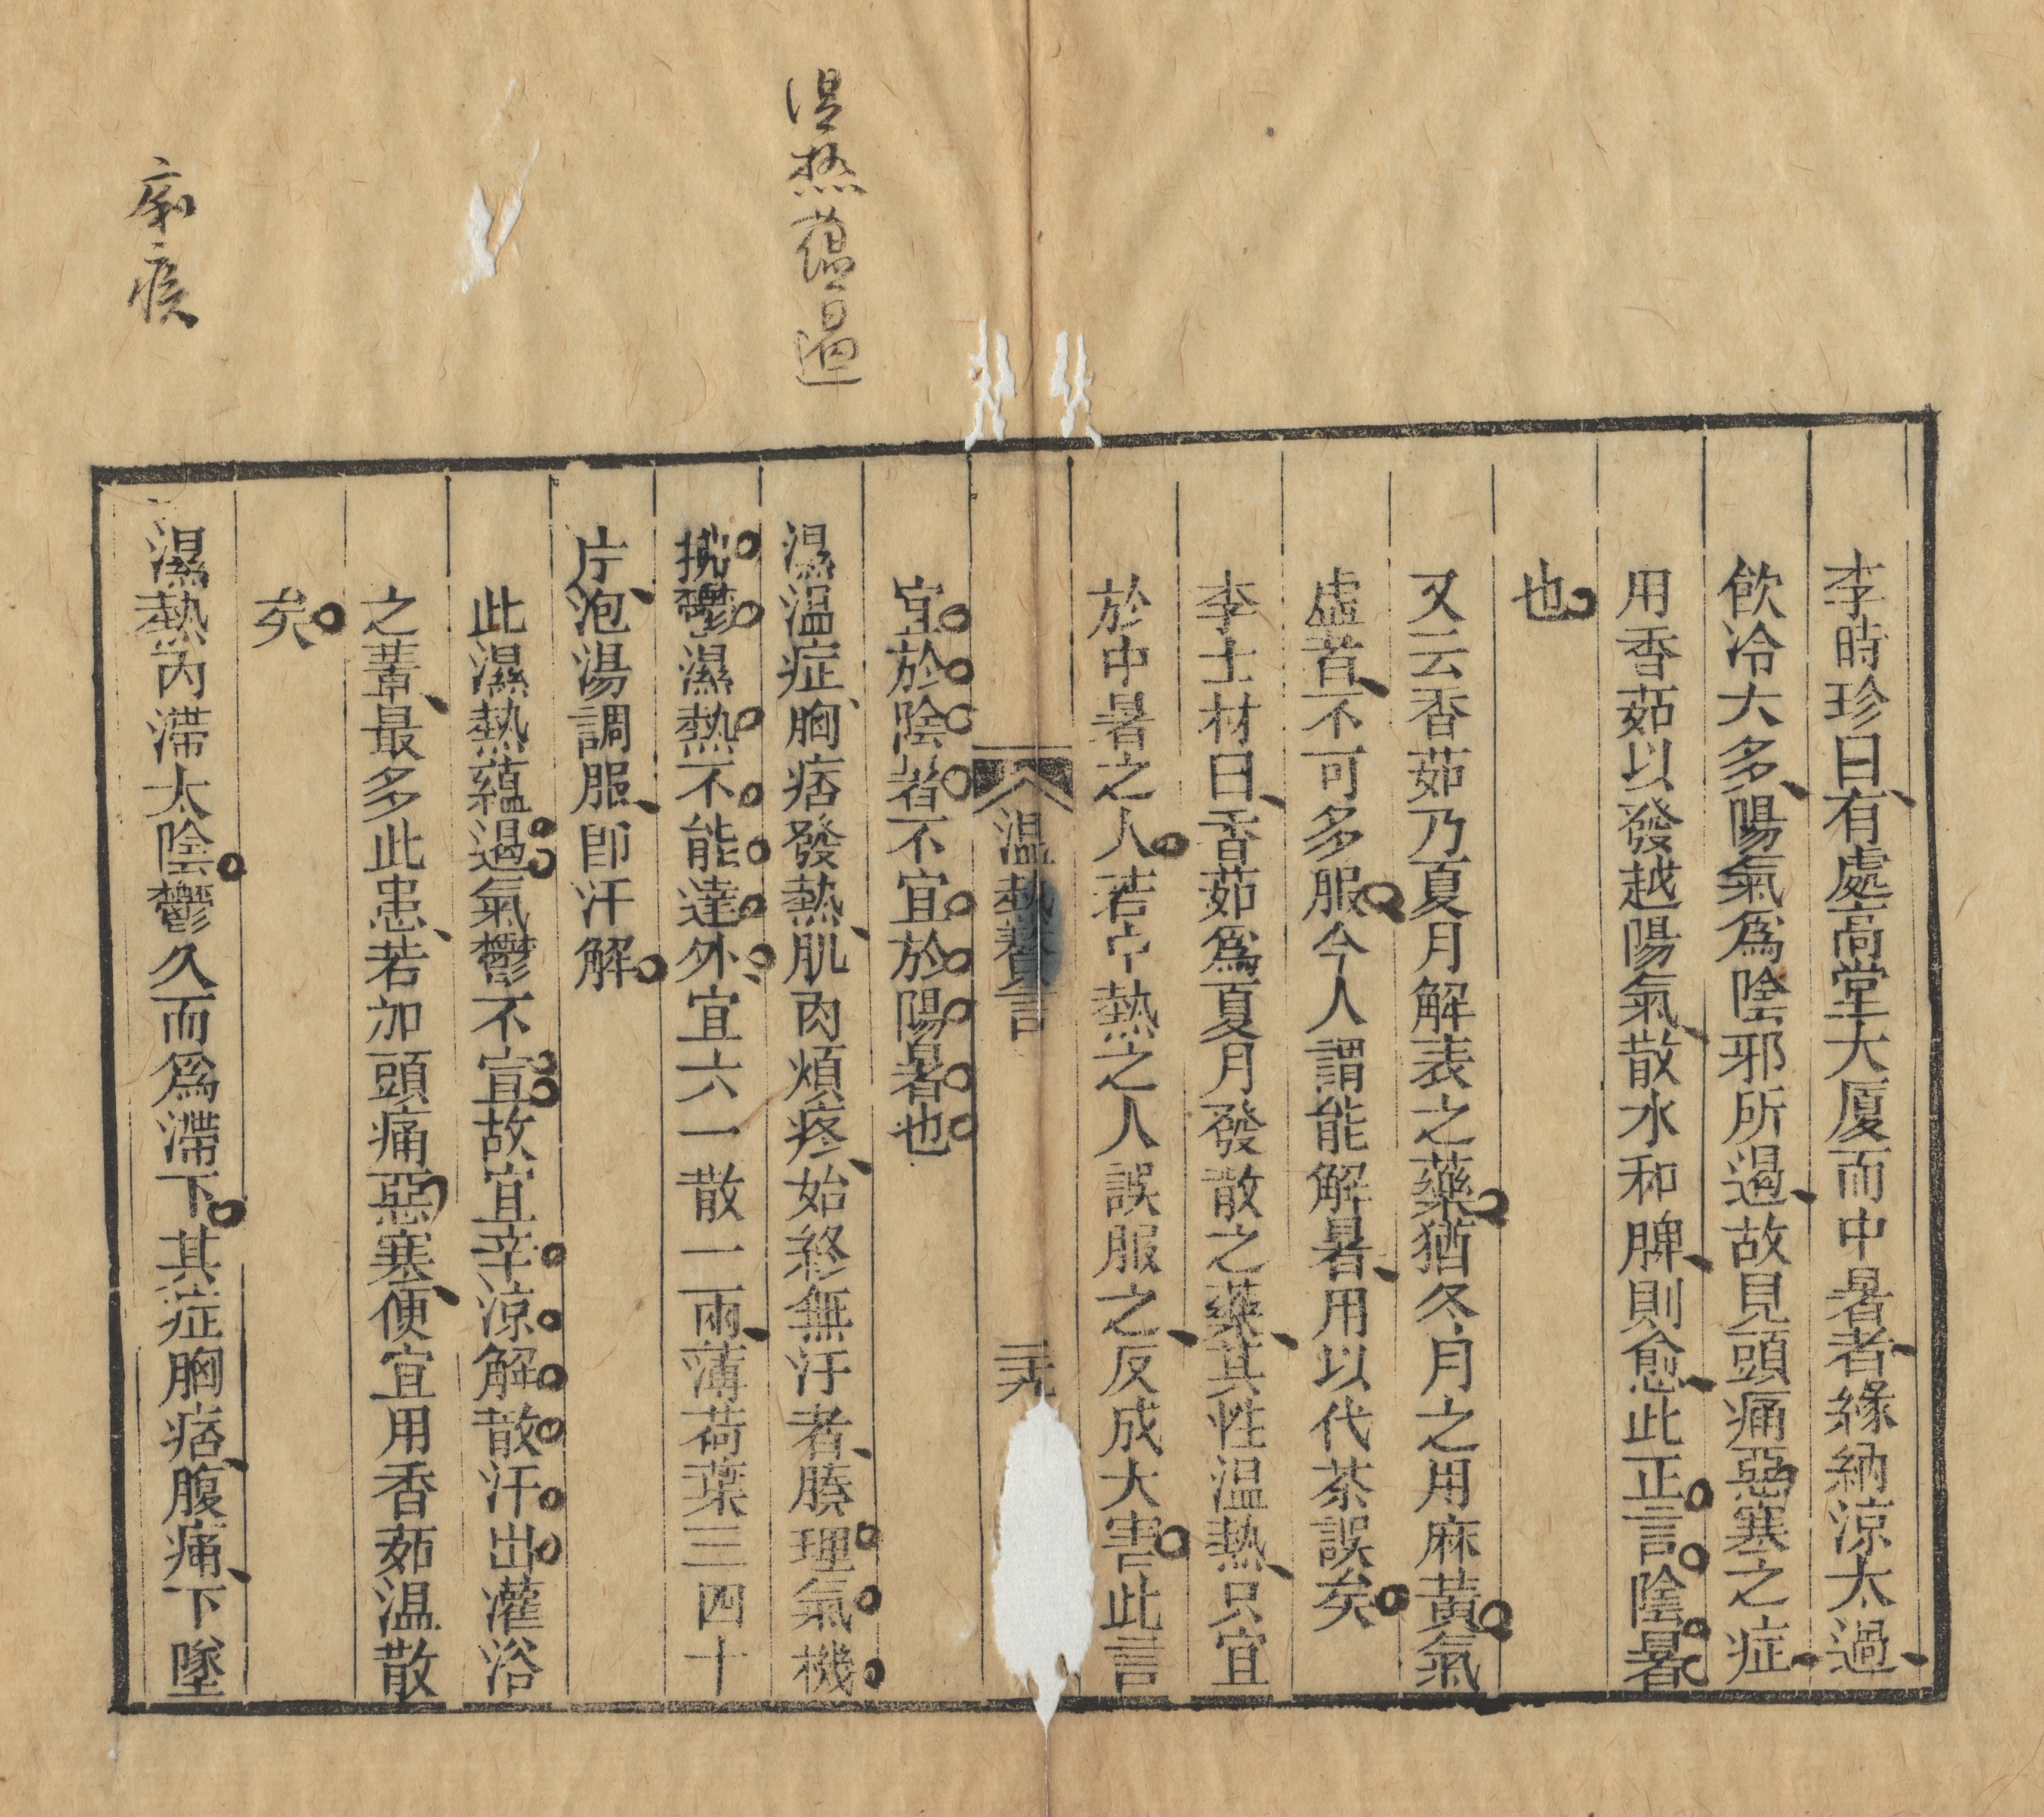 李時珍曰有處高堂大厦而中暑者緣納涼太過
飲冷大多陽氣爲陰邪所遏故見頭痛惡寒之症
用香茹以發越陽氣散水和脾則愈此正言陰暑
也
又云香茹乃夏月解表之藥猶冬月之用麻黃氣
虛者不可多服今人謂能解暑用以代茶誤矣
李士材曰香茹爲夏月發散之藥其性温熱只宜
於中暑之人若中熱之人誤服之反成大害此言
温熱贅言
二九
宜於陰者不宜於陽暑也
湿热蘊遏
濕温症胸痞發熱肌肉煩疼始終無汗者腠理氣機
拂鬱濕熱不能達外宜六一散一兩薄荷葉三四十
片泡湯調服卽汗解
此濕熱蘊遏氣鬱不宣故宜辛涼解散汗出灌浴
之輩最多此患若加頭痛惡寒便宜用香茹温散
矣
濕熱內滯太陰鬱久而爲滯下其症胸痞腹痛下墜